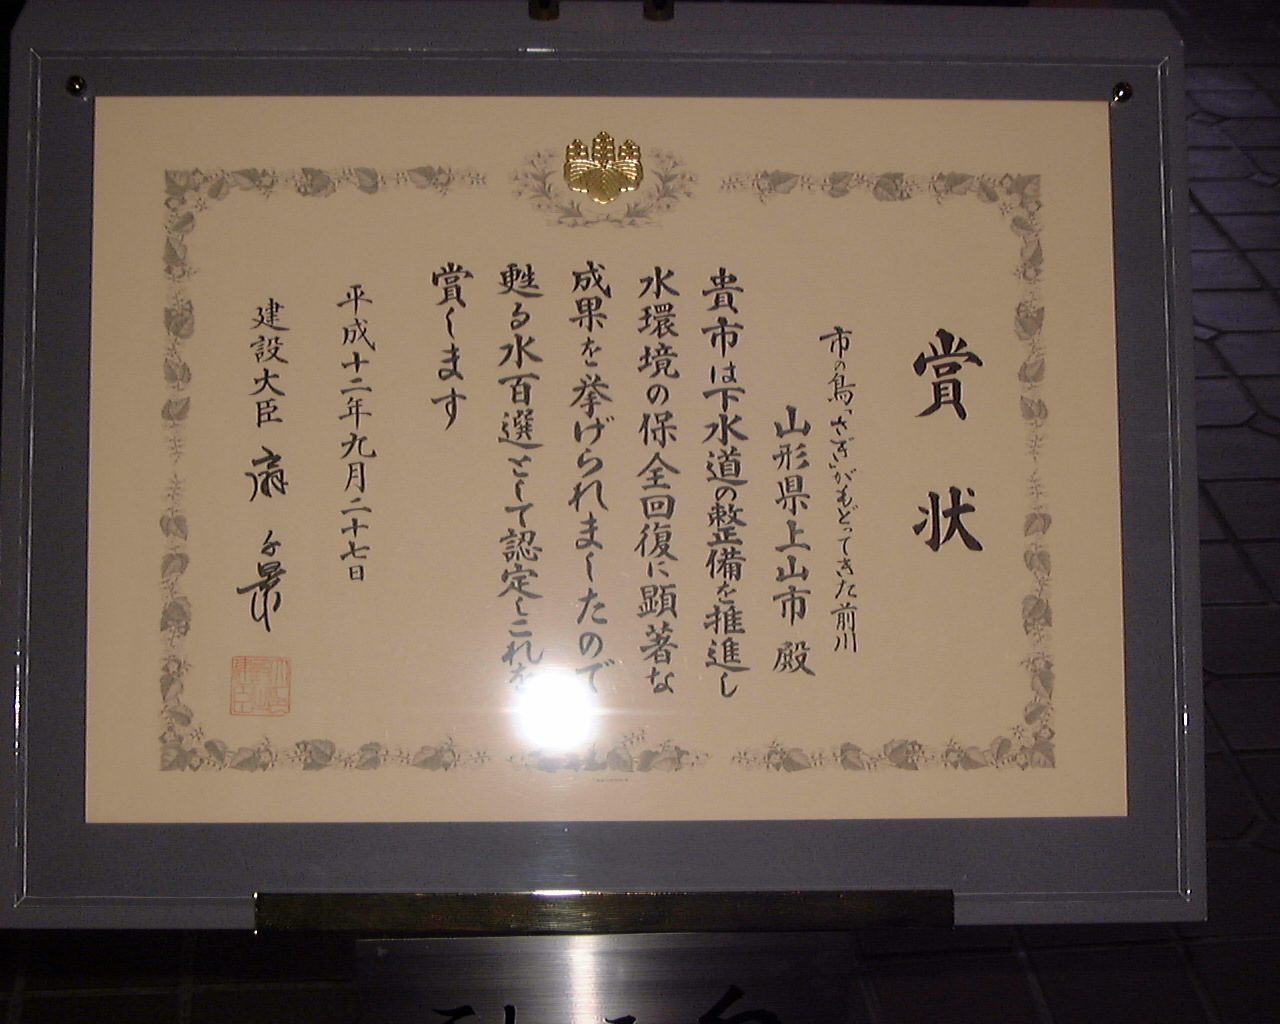 賞状
市の鳥「さぎ」がもどってきた前川
山形県上山市 殿
貴市は下水道の整備を推進し
水環境の保全回復に顕著な
成果を挙げられましたので
甦る水百選として認定しこれを
賞します
平成十二年九月二十七日
建設大臣 扇 千景